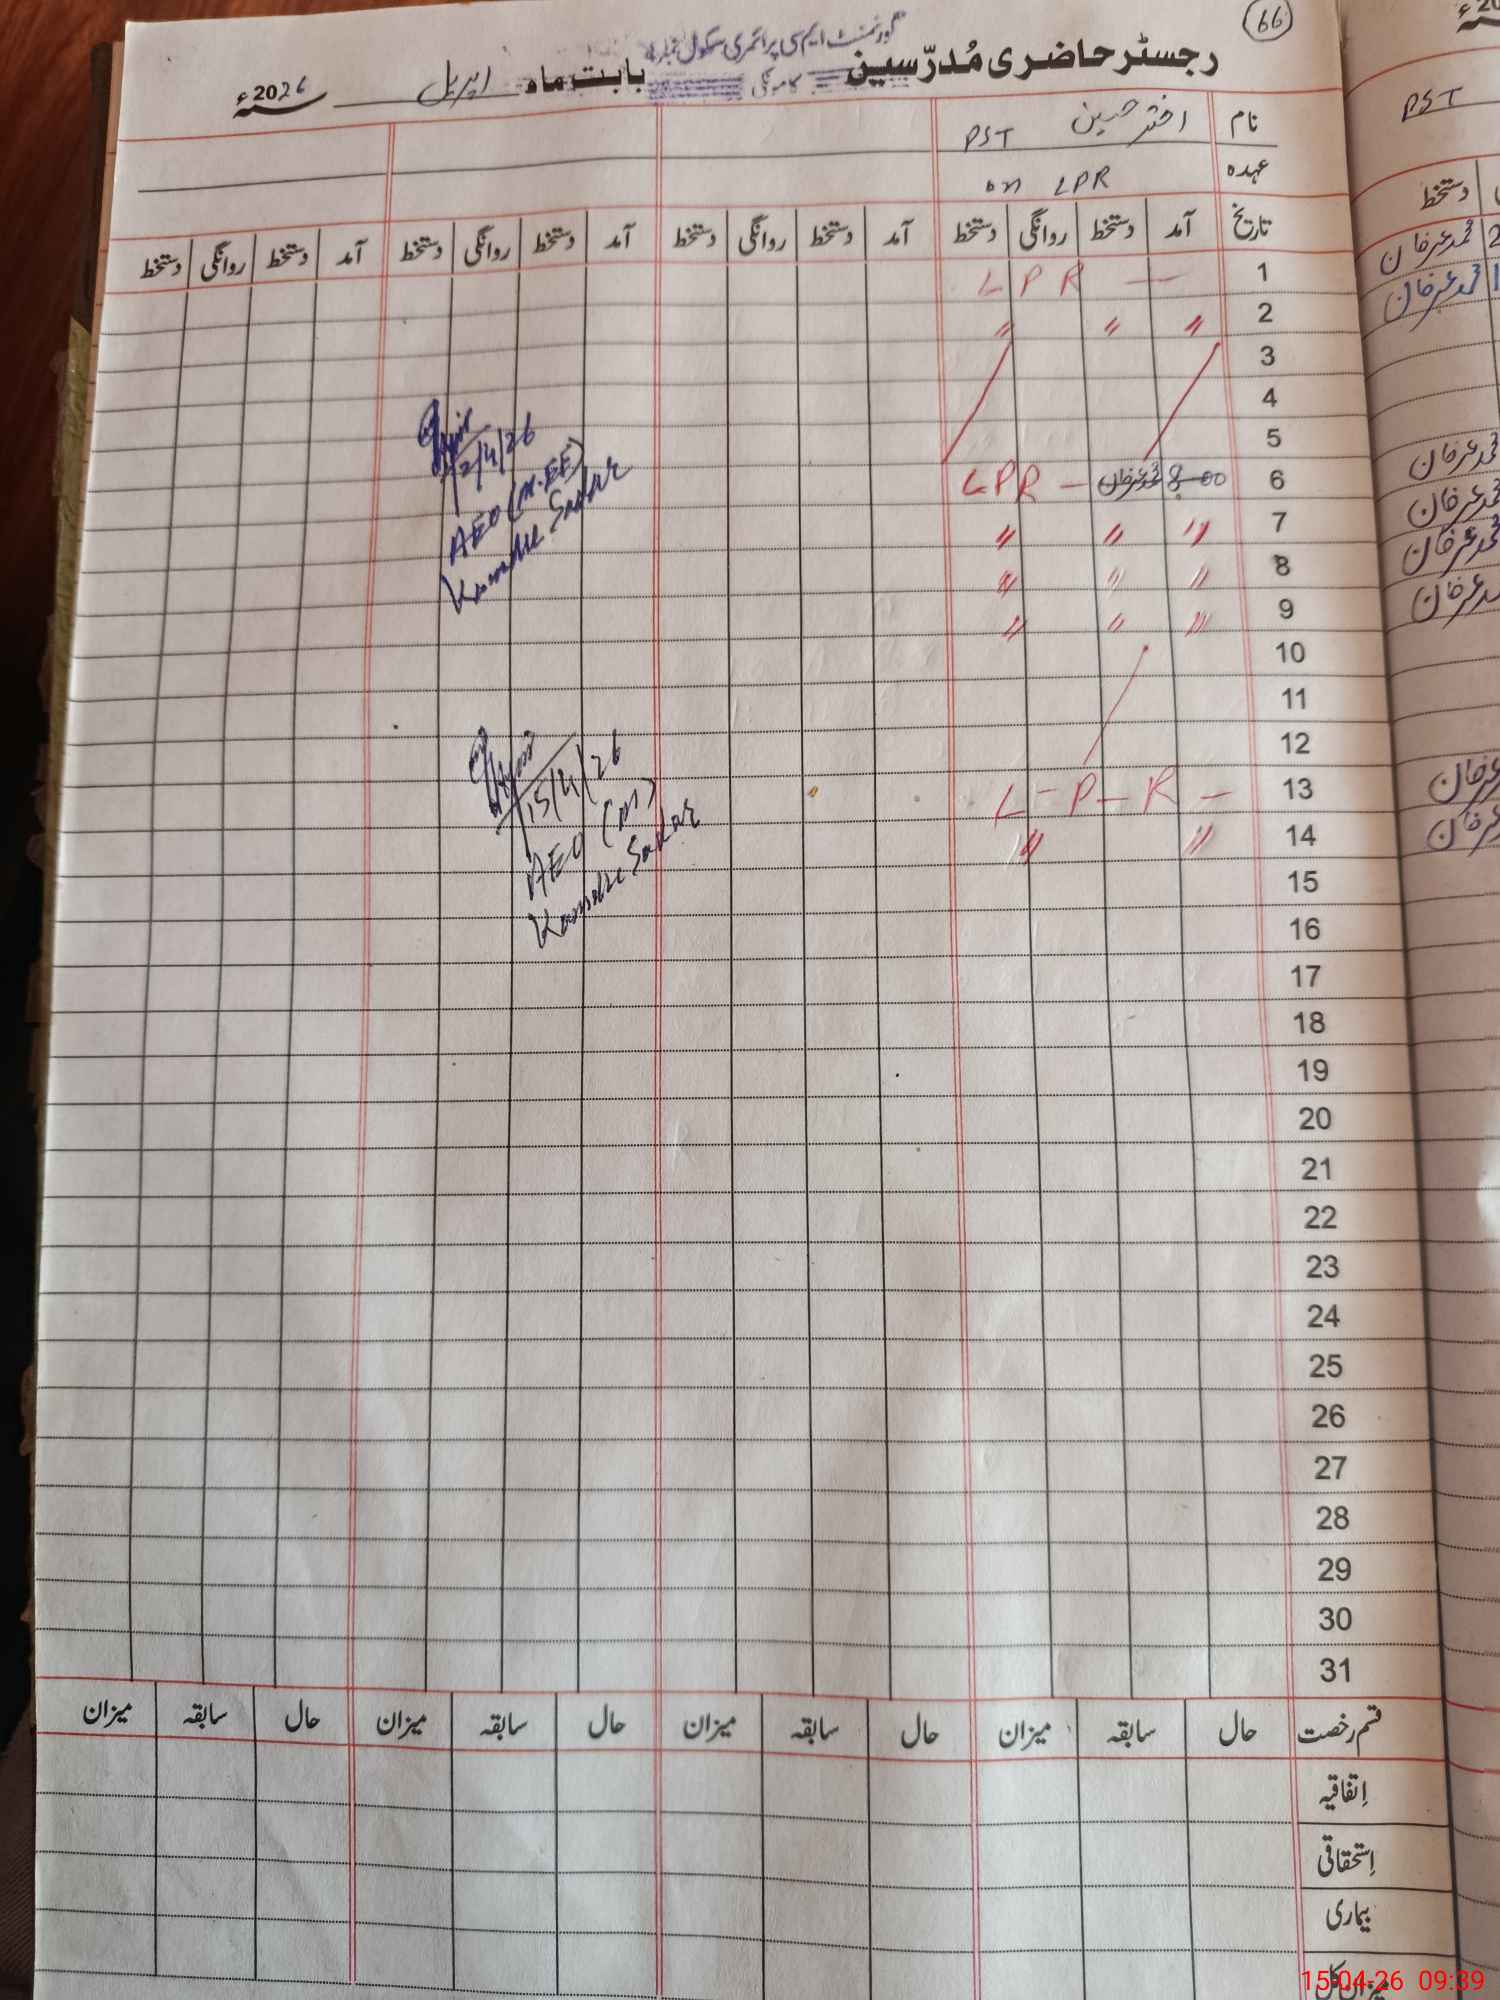 66
گورنمنٹ ایم سی پرائمری سکول نمبر 4
کامونکی
رجسٹر حاضری مُدرّسین بابت ماہ اپریل 2026ء
نام اختر حسین PST
عہدہ on LPR
تاریخ آمد دستخط روانگی دستخط آمد دستخط روانگی دستخط آمد دستخط روانگی دستخط آمد دستخط روانگی دستخط
1 L P R —
2 〃 〃 〃
3
4
5
6 8-00 محمد عرفان LPR -
7 〃 〃 〃
8 〃 〃 〃
9 〃 〃 〃
10
11
12
13 L - P - R -
14 〃 〃
15
16
17
18
19
20
21
22
23
24
25
26
27
28
29
30
31
2/4/26
AEO (M.EE)
Sadar
15/4/26
AEO (M)
Sadar
قسم رخصت حال سابقہ میزان حال سابقہ میزان حال سابقہ میزان حال سابقہ میزان
اِتفاقیہ
اِستحقاقی
بیماری
میزان کل
PST
دستخط
محمد عرفان
محمد عرفان
محمد عرفان
محمد عرفان
محمد عرفان
عرفان
عرفان
عرفان
15-04-26 09:39